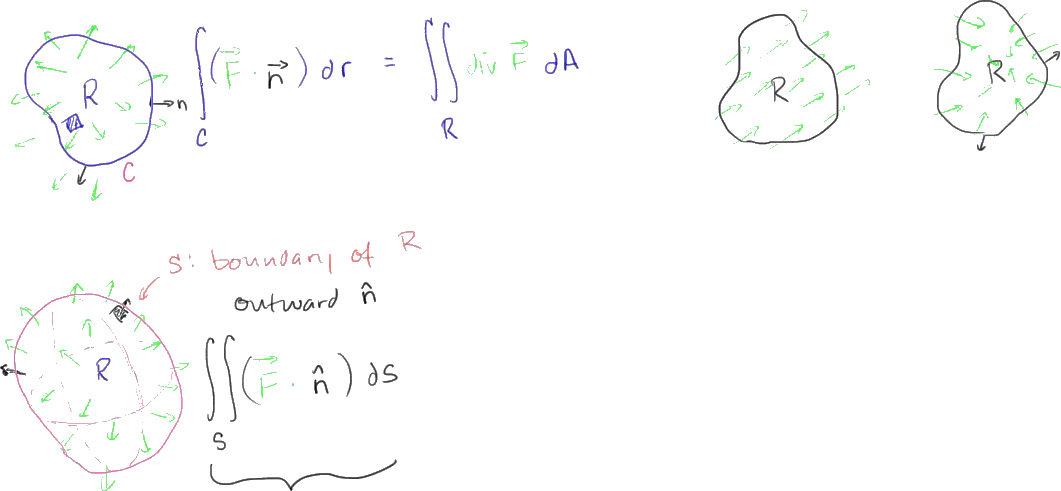 ∫_C (F⃗ · n⃗) dr = ∬_R div F⃗ dA
R
n
C
R
R
S: boundary of R
outward n̂
R
∬_S (F⃗ · n̂) dS